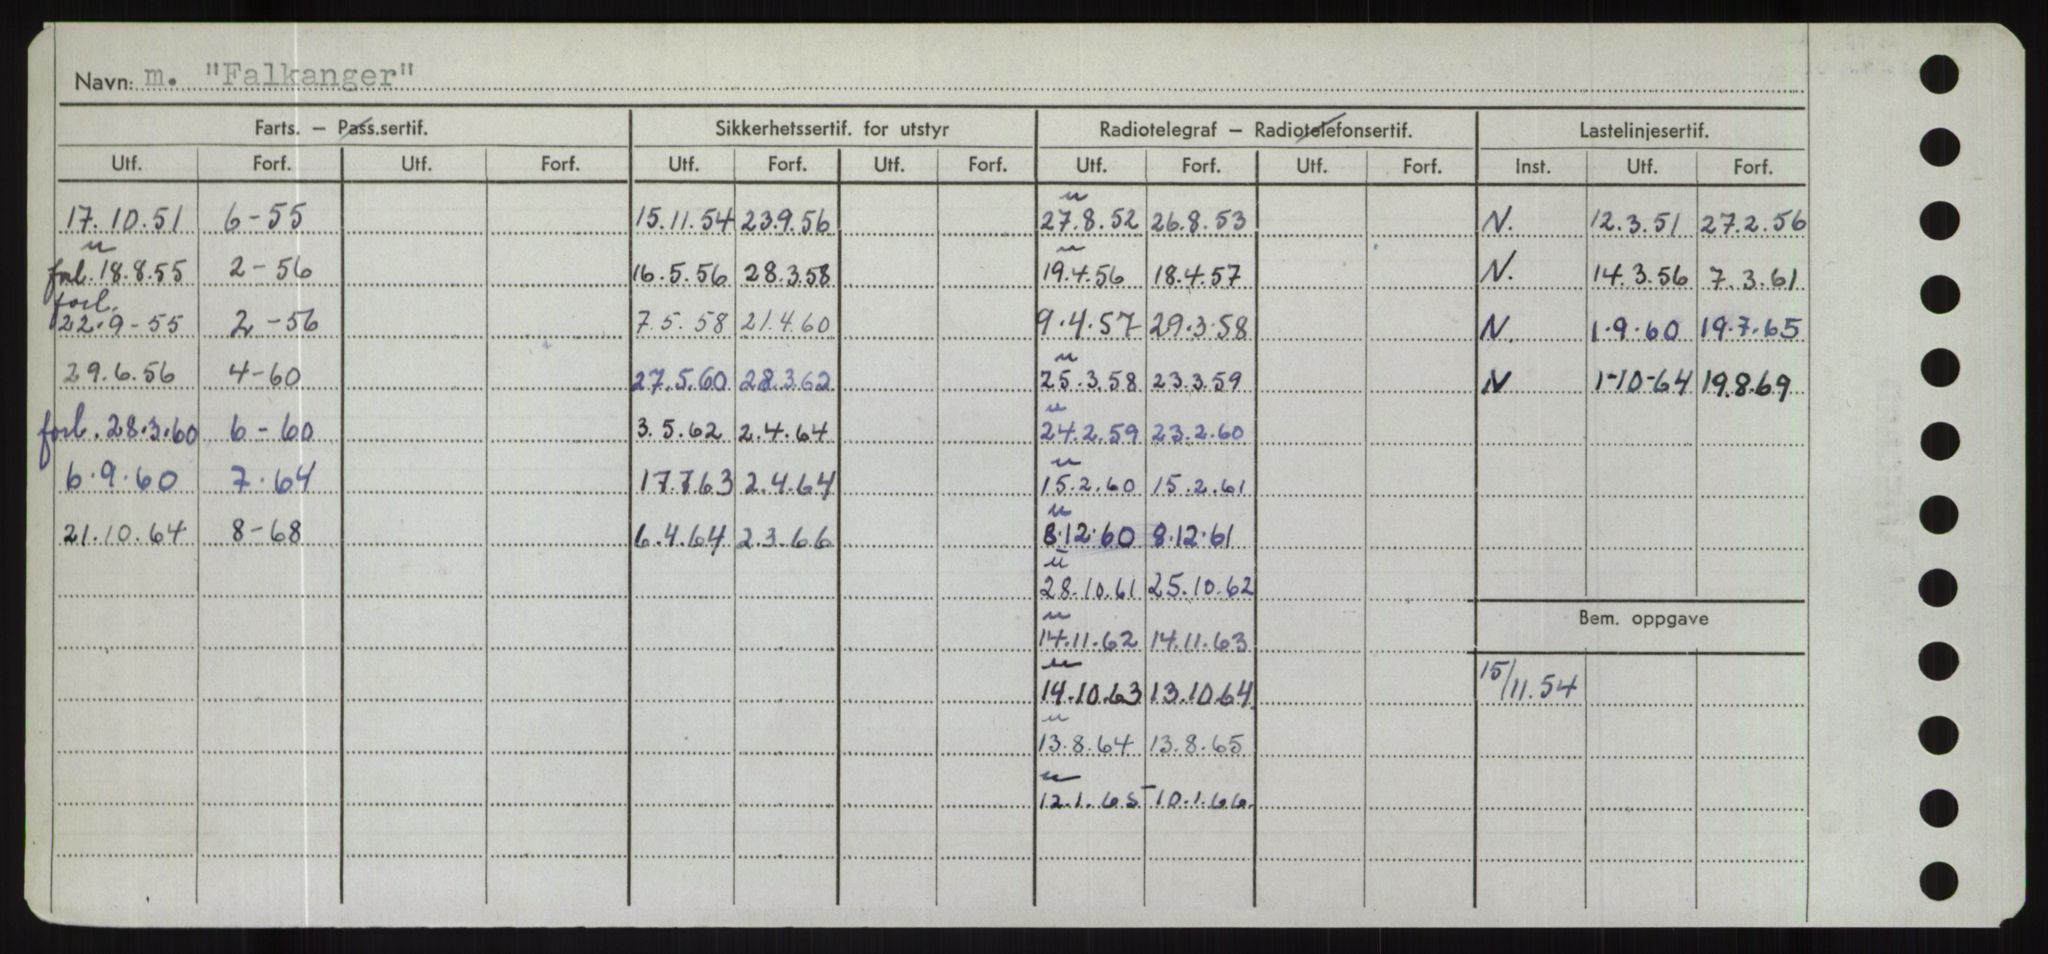 Navn: m. "Falkanger"
Farts. – Pass.sertif. Sikkerhetssertif. for utstyr Radiotelegraf – Radiotelefonsertif. Lastelinjesertif.
Utf. Forf. Utf. Forf. Utf. Forf. Utf. Forf. Utf. Forf. Utf. Forf. Inst. Utf. Forf.
u
17.10.51 6-55 15.11.54 23.9.56 27.8.52 26.8.53 N. 12.3.51 27.2.56
u u
forl. 18.8.55 2-56 16.5.56 28.3.58 19.4.56 18.4.57 N. 14.3.56 7.3.61
forl.
22.9-55 2-56 7.5.58 21.4.60 9.4.57 29.3.58 N. 1.9.60 19.7.65
u
29.6.56 4-60 27.5.60 28.3.62 25.3.58 23.3.59 N 1-10-64 19.8.69
u
forl. 28.3.60 6-60 3.5.62 2.4.64 24.2.59 23.2.60
u
6.9.60 7.64 17.7.63 2.4.64 15.2.60 15.2.61
u
21.10.64 8-68 6.4.64 2.3.66 8.12.60 8.12.61
u
28.10.61 25.10.62
Bem. oppgave
u
14.11.62 14.11.63
u
14.10.63 13.10.64 15/11.54
u
13.8.64 13.8.65
u
12.1.65 10.1.66